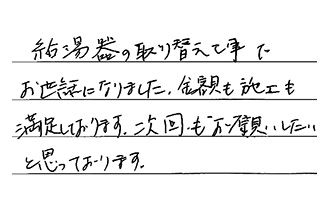 給湯器の取り替え工事で
お世話になりました。金額も施工も
満足しております。次回もお願いしたい
と思っております。